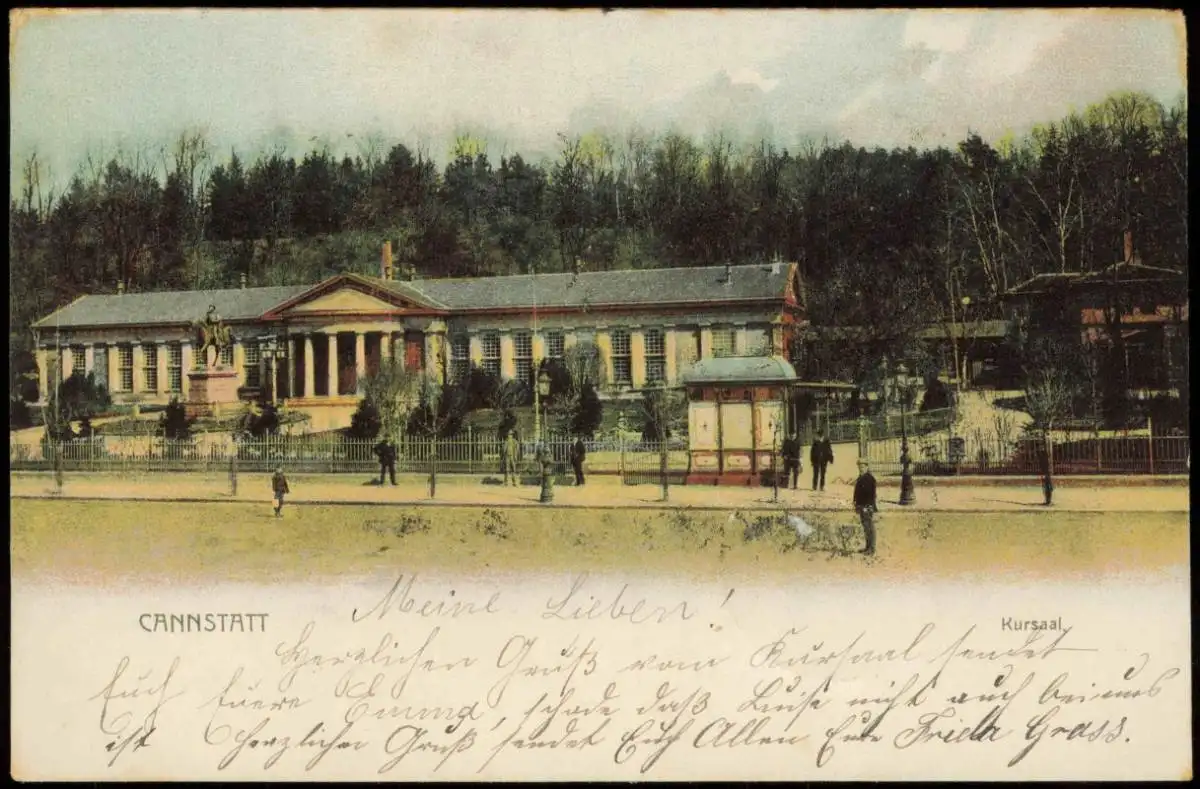 Meine Lieben!
CANNSTATT
Kursaal.
Herzlichen Gruß vom Kursaal sendet
Euch Euere Emma, schade daß Luise nicht auch bei uns
ist Herzlichen Gruß sendet Euch Allen Eure Frieda Grass.